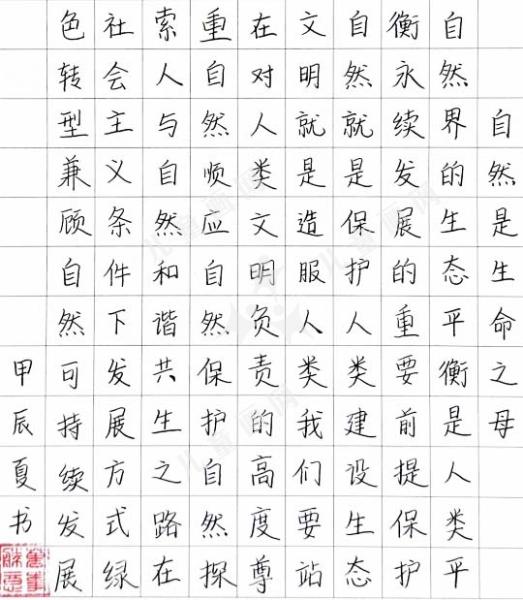 自然是生命之母
自然界的生态平衡是人类平
衡永续发展的重要前提保护
自然就是保护人类建设生态
文明就是造服人类我们要站
在对人类文明负责的高度尊
重自然顺应自然保护自然探
索人与自然和谐共生之路在
社会主义条件下发展方式绿
色转型兼顾自然可持续发展
甲辰夏书
儿童画网